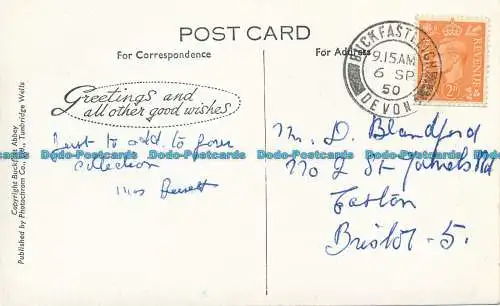 POST CARD
For Correspondence
For Address
BUCKFASTLEIGH
9.15 AM
6 SP
50
DEVON
REVENUE
2D
Greetings and
all other good wishes
Just to add to your
collection
Miss
Mr. D. Blandford
St
Easton
Bristol - 5.
Copyright Buckfast Abbey
Published by Photochrom Co., Ltd., Tunbridge Wells
Dodo-Postcards Dodo-Postcards Dodo-Postcards Dodo-Postcards Dodo-Postcards